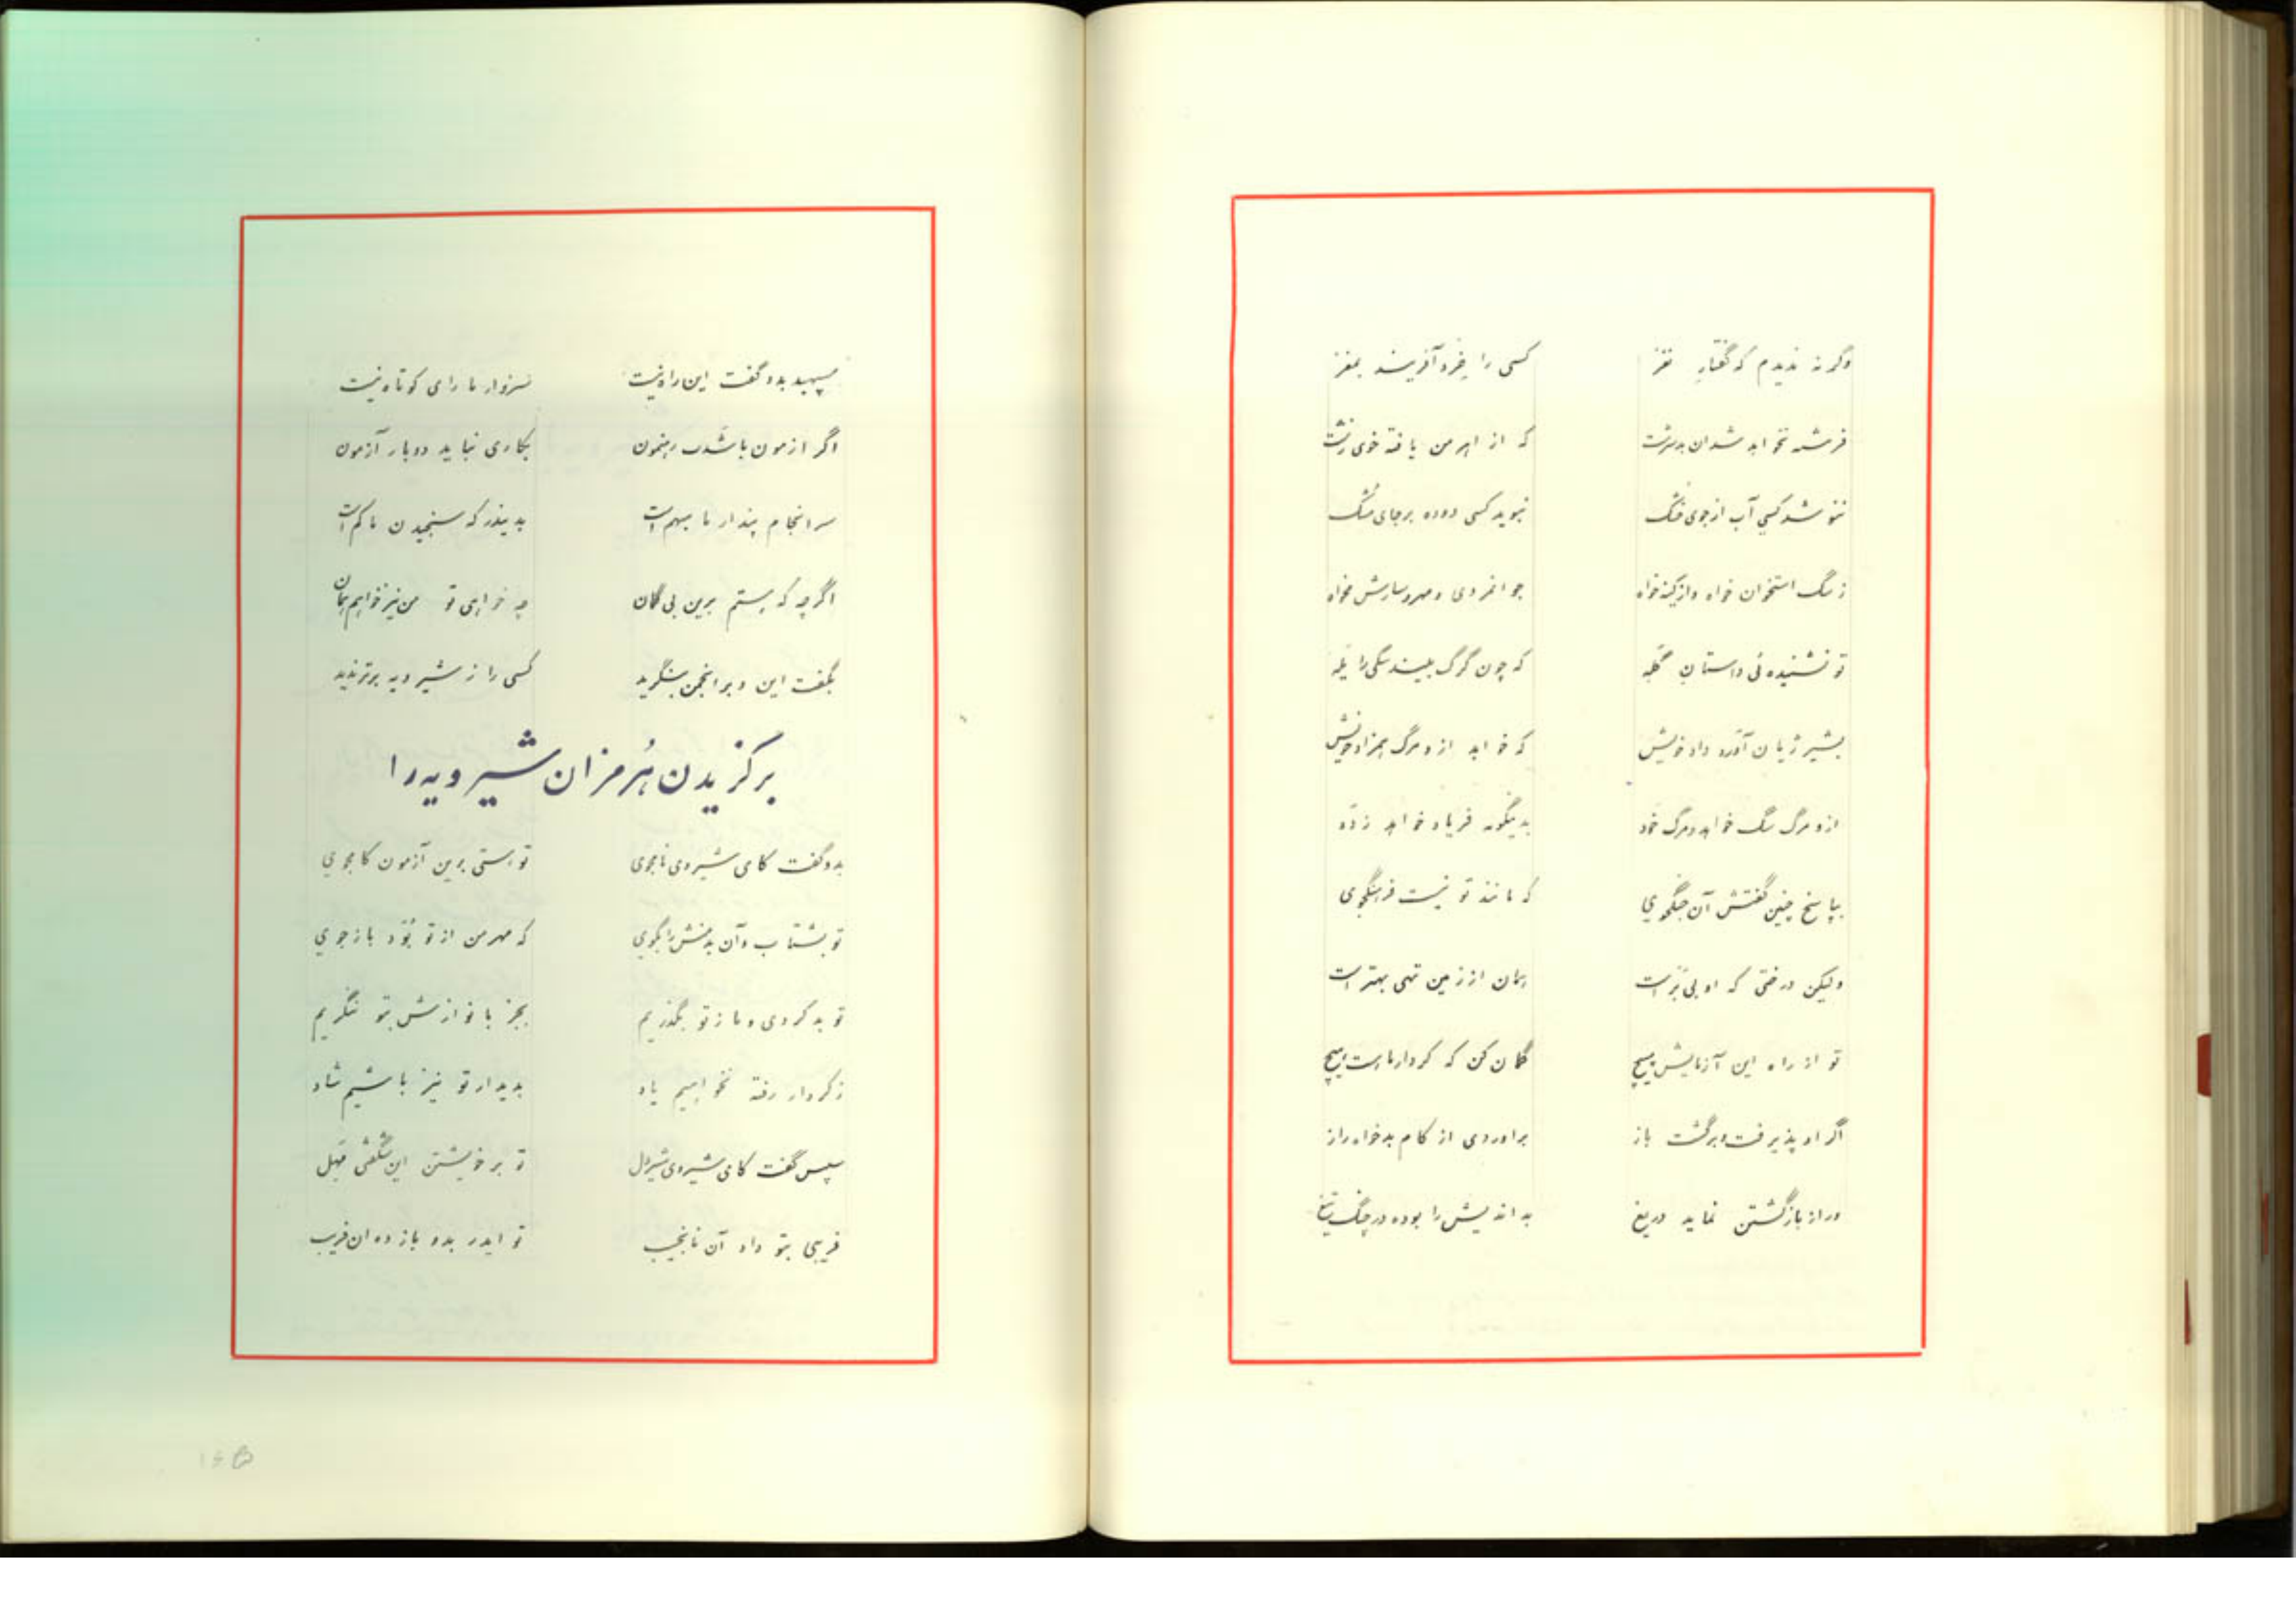 وگرنه ندیدم که گفتارِ نغز کسی را خِرَد آفریند بمغز
فرشته نخواهد شدان بدسرشت که از اهرمن یافته خوی زشت
ننوشد کسی آب از جوی خشک نبوید کسی دوده برجای مُشک
ز سگ استخوان خواه و از کینه خواه جوانمردی و مهر و سازش مخواه
تو نشنیده ئی داستانِ گله که چون گرگ بیند سگی را یَله
بشیر ژیان آوَرَد داد خویش که خواهد ازو مرگ همزاد خویش
ازو مرگ سگ خواهد و مرگ خود بدینگونه فریاد خواهد زدَد
بپاسخ چنین گفتش آن جنگجوی که مانند تو نیست فرهنگجوی
ولیکن درختی که او بی بَر است همان از زمین تهی بهتر است
تو از راه این آزمایش مپیچ گمان کن که کردار ما هست هیچ
اگر او پذیرفت و برگشت باز براوردی از کام بدخواه راز
ور از بازگشتن نماید دریغ بداندیش را بوده در چنگ تیغ
سپهبد بدو گفت این راه نیست سزوار ما رای کوتاه نیست
اگر ازمون باشدت رهنمون بکاری نباید دوبار آزمون
سرانجام پندار ما مبهم است بدینذر که سنجیدن ما کم است
اگرچه که هستم برین بی گمان چه خواهی تو من نیز خواهم همان
بگفت این و بر انجمن بنگرید کسی را ز شیرویه برتر ندید
برگزیدن هُرمزان شیرویه را
بدو گفت کای شیروی نامجوی تو هستی برین آزمون کامجوی
تو بشتاب و آن بدمنش را بگوی که مهر من از تو بُوَد بازجوی
تو بد کردی و ما ز تو بگذریم بجز با نوازش بتو ننگریم
ز کردار رفته نخواهیم یاد بدیدار تو نیز باشیم شاد
سپس گفت کای شیروی شیردل تو بر خویشتن این شگفتی مَهِل
فریبی بتو داد آن نانجیب تو ایدر بدو بازده ان فریب